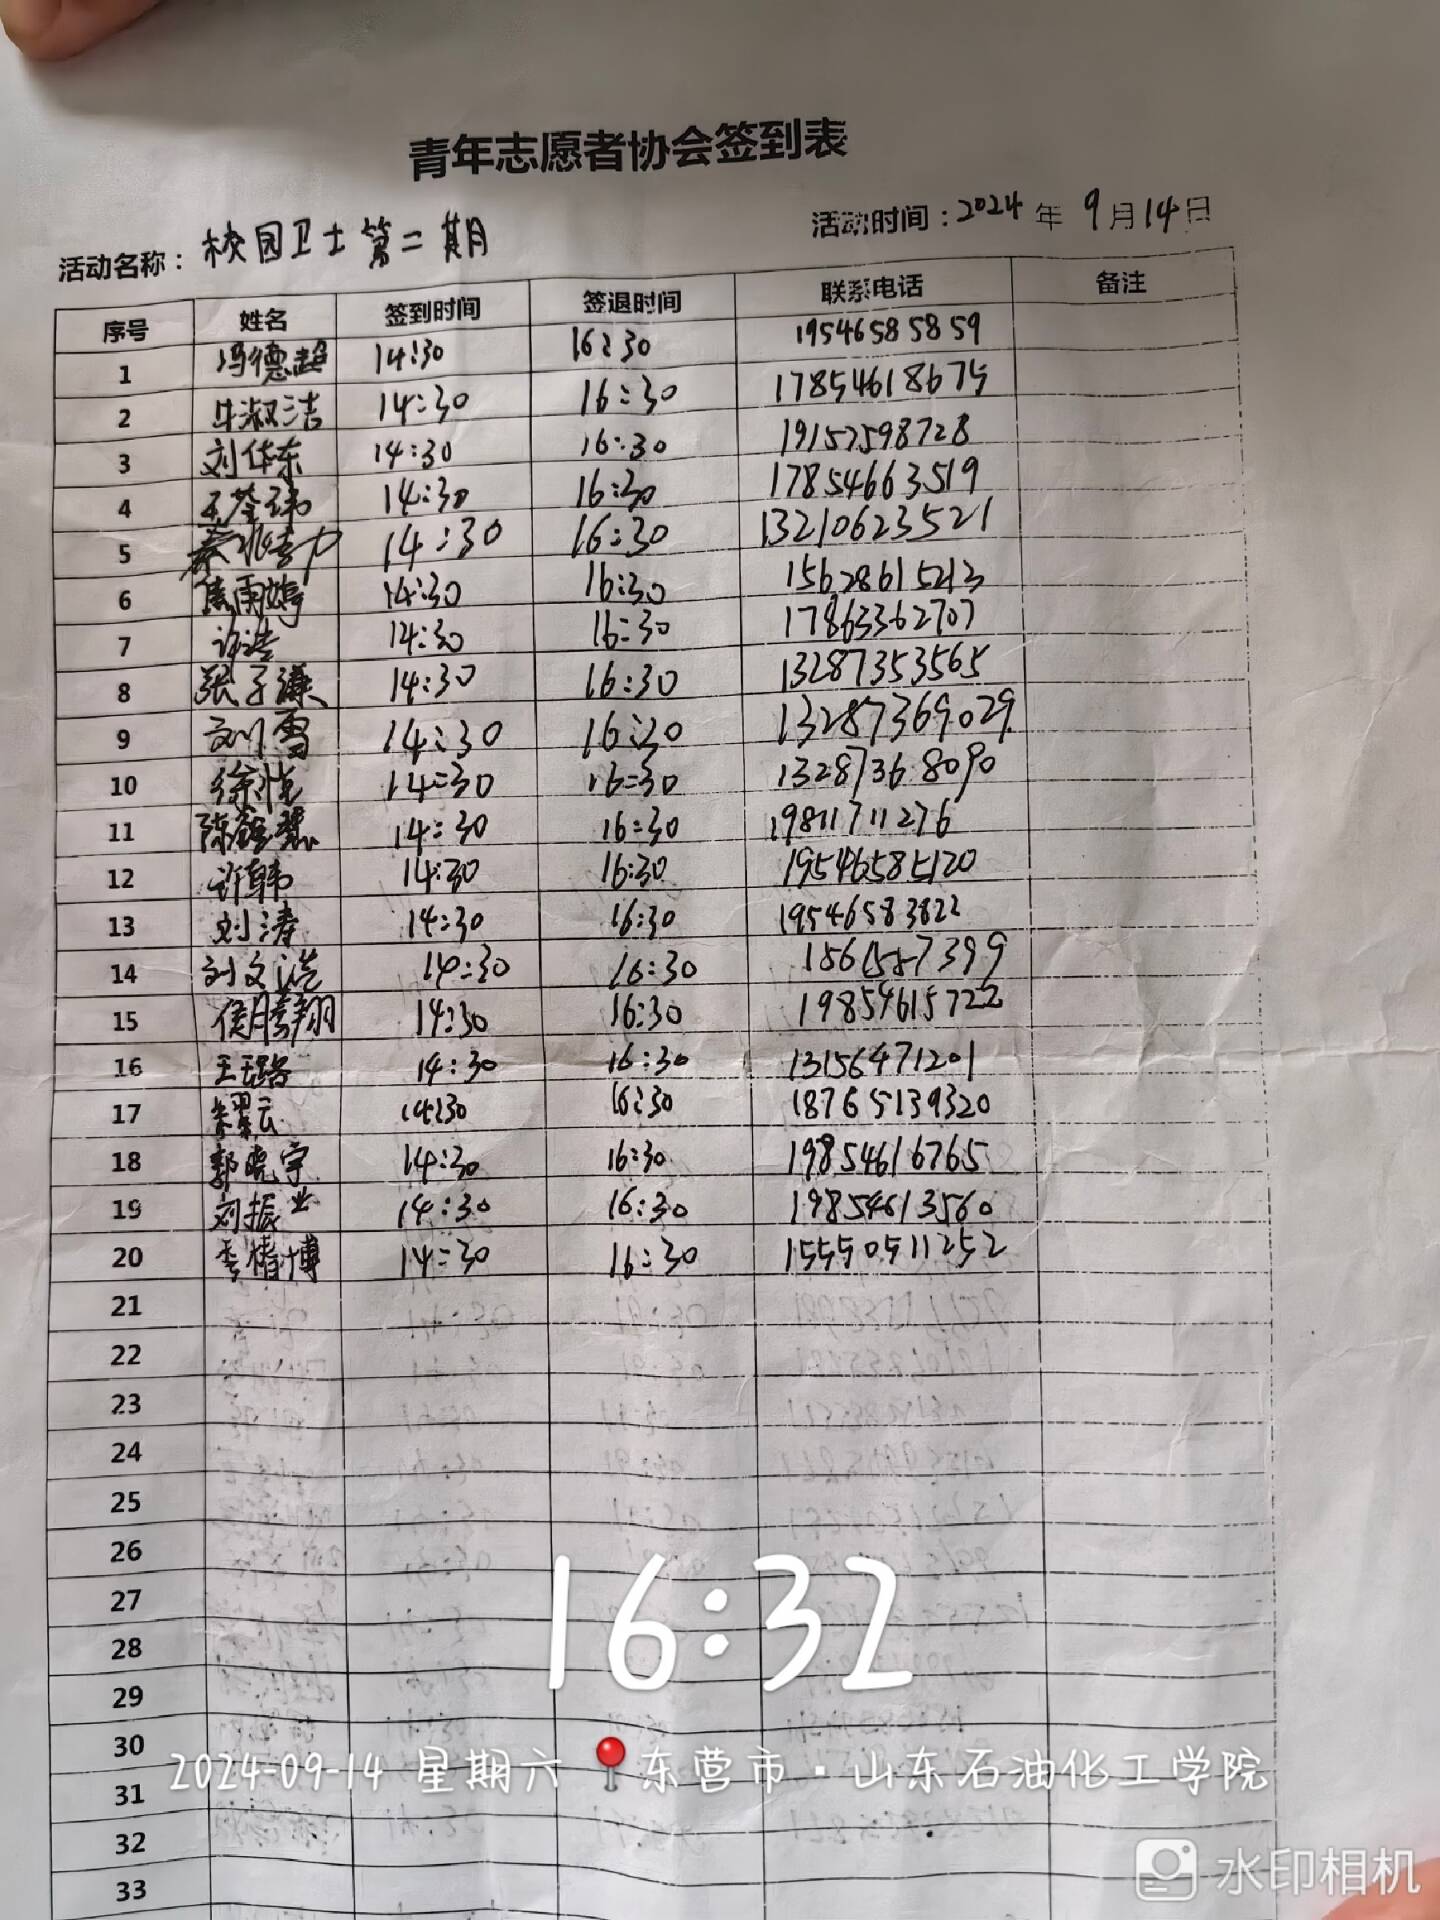 青年志愿者协会签到表
活动名称：校园卫士第二期 活动时间：2024年9月14日
序号 姓名 签到时间 签退时间 联系电话 备注
1 冯德超 14:30 16:30 19546585859
2 牛淑洁 14:30 16:30 17854618675
3 刘华东 14:30 16:30 19157598728
4 王荃玮 14:30 16:30 17854663519
5 14:30 16:30 13210623521
6 14:30 16:30 15628615213
7 许浩 14:30 16:30 17863362707
8 张子谦 14:30 16:30 13287353565
9 刘雪 14:30 16:30 13287369029
10 徐恺 14:30 16:30 13287368090
11 14:30 16:30 19811711276
12 许韩 14:30 16:30 19546585120
13 刘涛 14:30 16:30 19546583822
14 刘文浩 14:30 16:30
15 侯腾翔 14:30 16:30 19854615722
16 王璐 14:30 16:30 13156471201
17 14:30 16:30 18765139320
18 郭晓宇 14:30 16:30 19854616765
19 刘振业 14:30 16:30 19854613560
20 李楷博 14:30 16:30 15550511252
21
22
23
24
25
26
27
28
29
30
31
32
33
16:32
2024-09-14 星期六 东营市·山东石油化工学院
水印相机